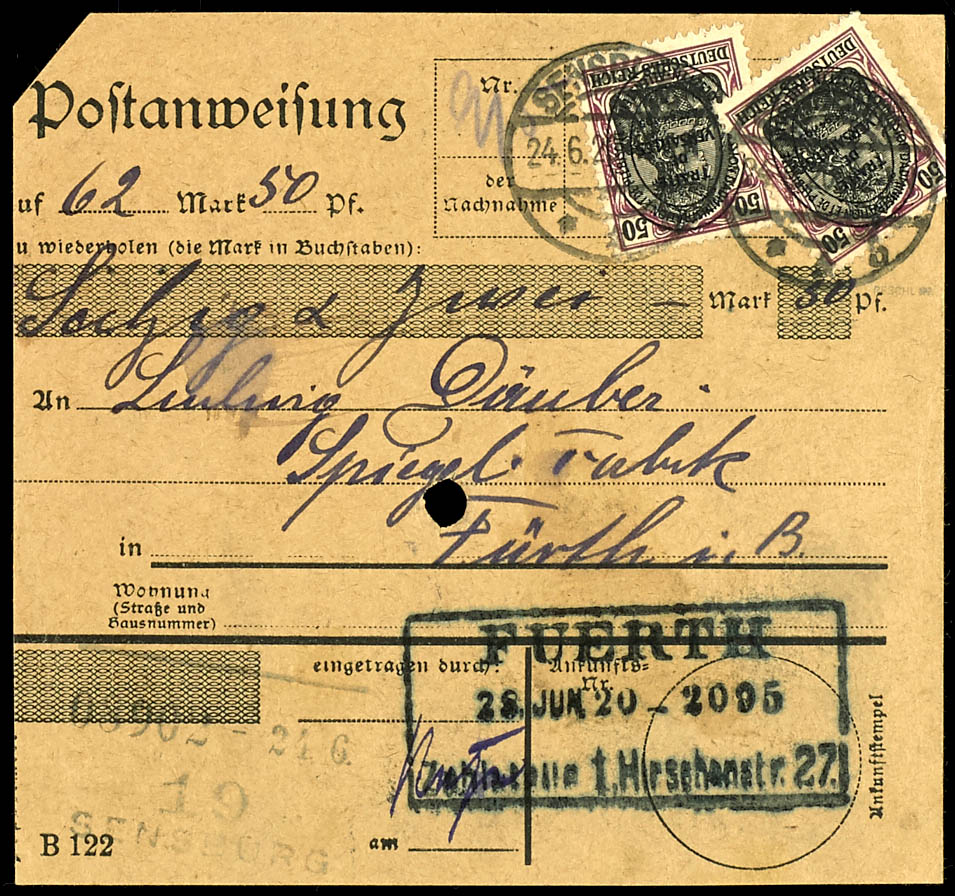 Postanweisung
Nr.
der
Nachnahme
uf 62 Mark 50 Pf.
u wiederholen (die Mark in Buchstaben):
Sechzig & Zwei — Mark 50 Pf.
An Ludwig Däuber
Spiegel Fabrik
in Fürth i. B.
Wohnung
(Straße und
Hausnummer)
SENSBURG
24.6.2
b
DEUTSCHES REICH
50
50
DEUTSCHES REICH
50
50
eingetragen durch:
Ankunfts-
Nr.
FUERTH
28. JUN 20 - 2095
Zahlstelle 1, Hirschenstr. 27.
Ankunftstempel
- 24 6
19
SENSBURG
B 122
am